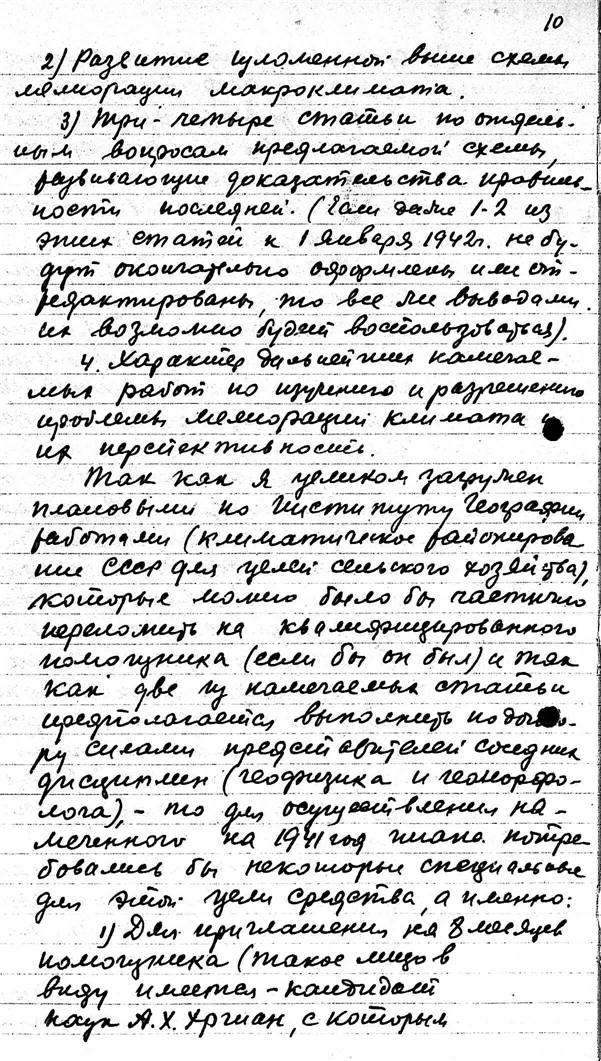 10
2) Развитие изложенной выше схемы
мелиорации макроклимата.
3) Три-четыре статьи по отдель-
ным вопросам предлагаемой схемы,
развивающие доказательства правиль-
ности последней. (Если даже 1-2 из
этих статей к 1 января 1942г. не бу-
дут окончательно оформлены или от-
редактированы, то все же выводами
их возможно будет воспользоваться).
4. Характер дальнейших намечае-
мых работ по изучению и разрешению
проблемы мелиорации климата и
их перспективность.
Так как я целиком загружен
плановыми по Институту Географии
работами (климатическое районирова
ние СССР для целей сельского хозяйства),
которые можно было бы частично
переложить на квалифицированного
помощника (если бы он был) и так
как две из намечаемых статьи
предполагается выполнить по догово-
ру силами представителей соседних
дисциплин (геофизика и геоморфо-
лога), - то для осуществления на-
меченного на 1941 год плана потре-
бовались бы некоторые специальные
для этой цели средства, а именно:
1) Для приглашения на 8 месяцев
помощника (такое лицо в
виду имеется - кандидат
наук А.Х. Хргиан, с которым